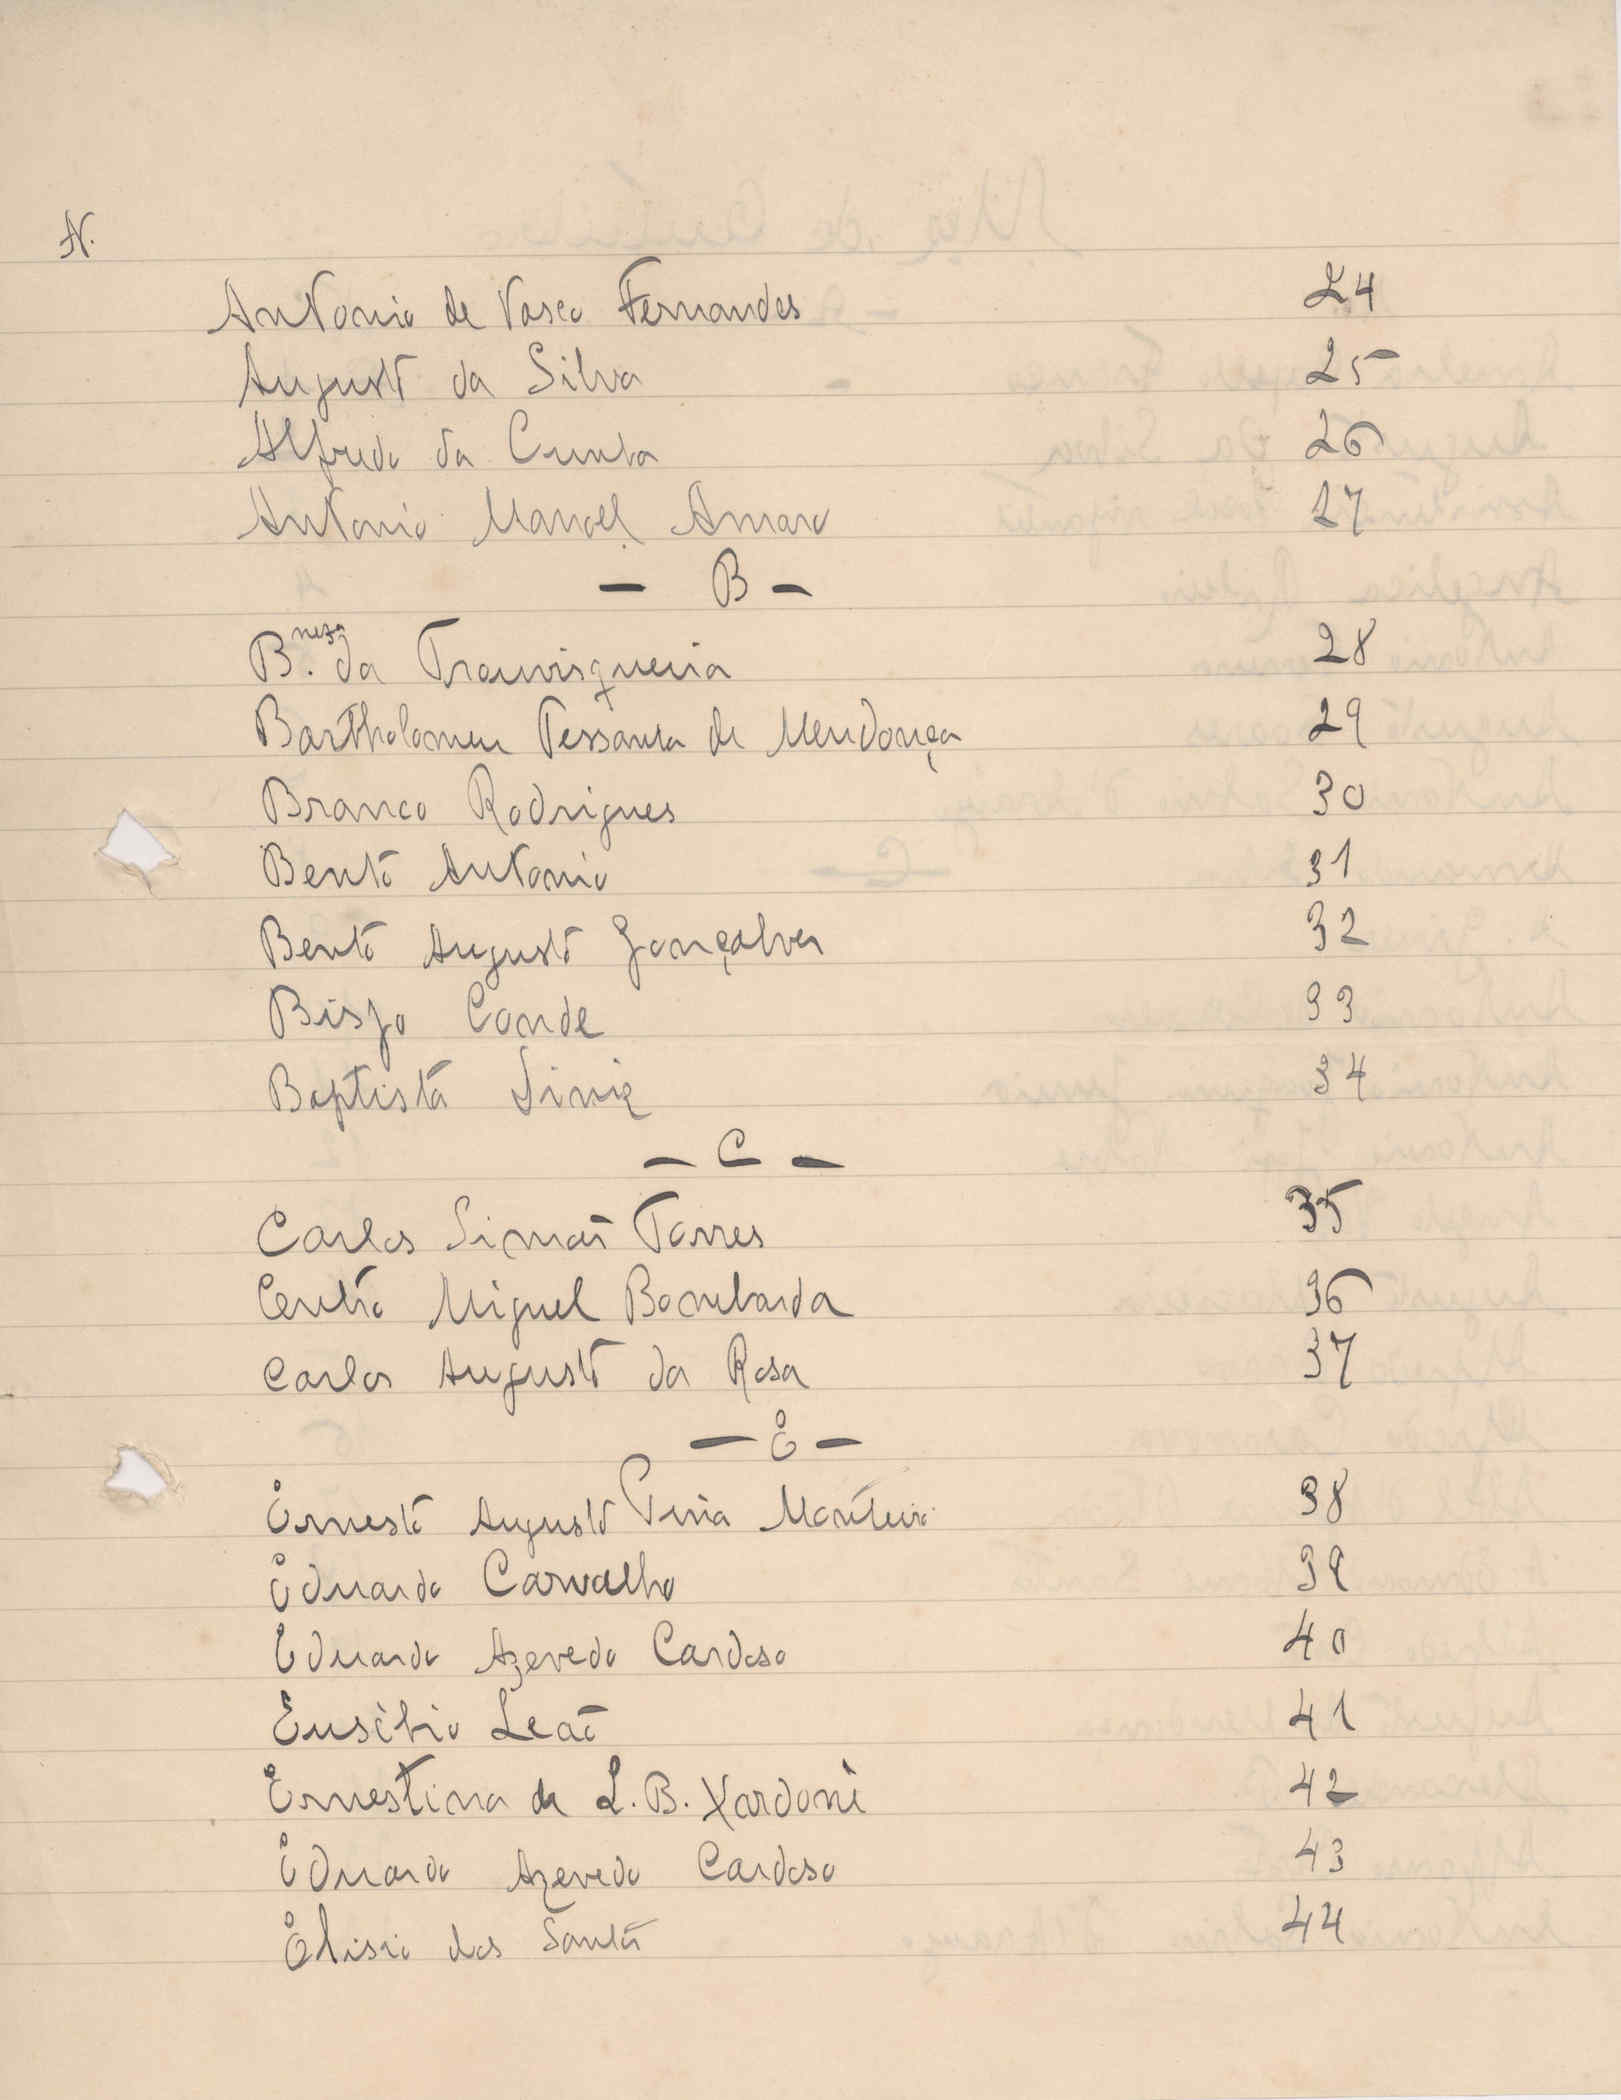 N.
Antonio de Vasco Fernandes 24
Augusto da Silva 25
Alfredo da Cunha 26
Antonio Manoel Amaro 27
— B —
B.neza da Trouvisqueira 28
Bartholomeu Pessanha de Mendonça 29
Branco Rodrigues 30
Bento Antonio 31
Bento Augusto Gonçalves 32
Bispo Conde 33
Baptista Diniz 34
— C —
Carlos Simões Torres 35
Centro Miguel Bombarda 36
Carlos Augusto da Rosa 37
— E —
Ernesto Augusto Monteiro 38
Eduardo Carvalho 39
Eduardo Azevedo Cardoso 40
Eusébio Leão 41
Ernestina de L. B. Xardoné 42
Eduardo Azevedo Cardoso 43
Elisio dos Santos 44